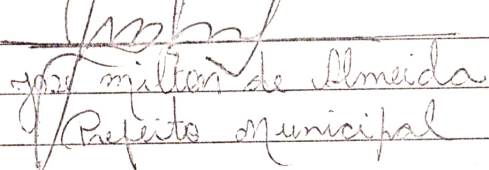 José Milton de Almeida
Prefeito Municipal